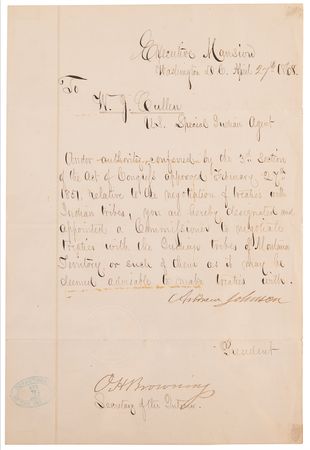 Executive Mansion
Washington D.C. April 27th 1868.
To
W. J. Cullen
U.S. Special Indian Agent
Under authority conferred by the 3rd section
of the Act of Congress approved February 27th
1851, relative to the negotiation of treaties with
Indian tribes, you are hereby designated and
appointed a Commissioner to negotiate
treaties with the Indian tribes of Montana
Territory or such of them as it may be
deemed advisable to make treaties with.
Andrew Johnson
President
O H Browning
Secretary of the Interior.